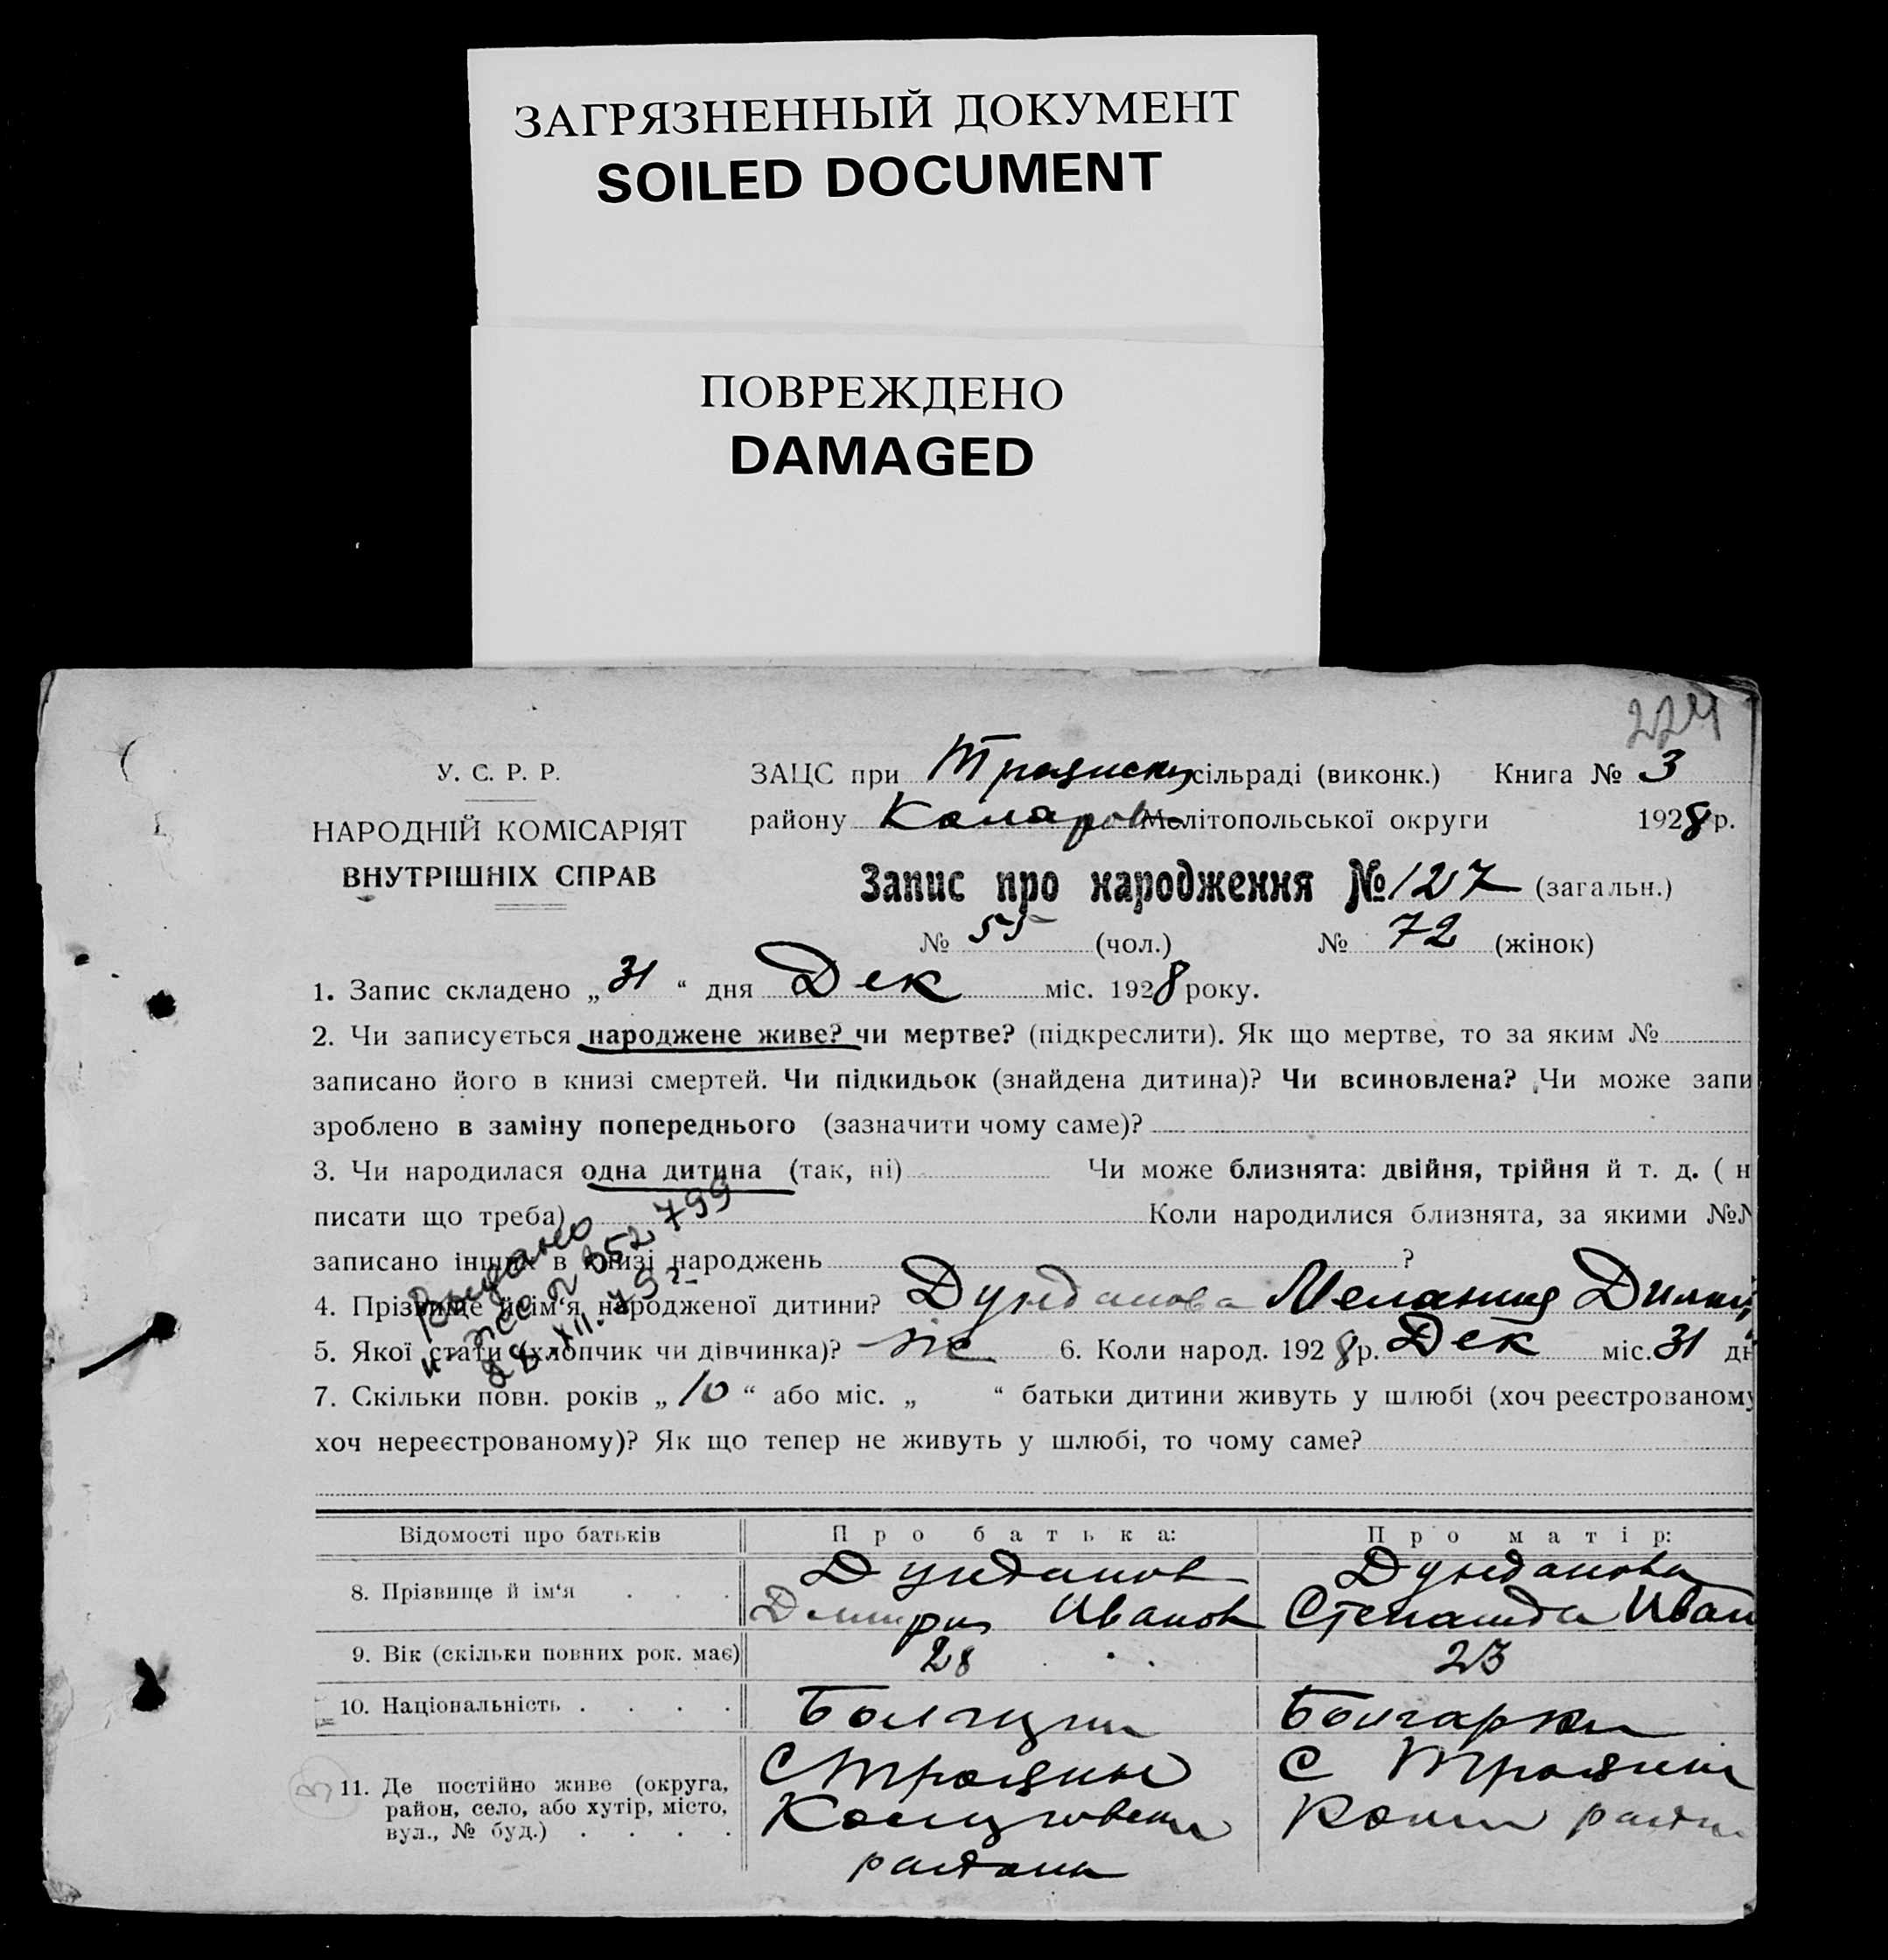 ЗАГРЯЗНЕННЫЙ ДОКУМЕНТ
SOILED DOCUMENT
ПОВРЕЖДЕНО
DAMAGED
224
У. С. Р. Р.
НАРОДНІЙ КОМІСАРІЯТ
ВНУТРІШНІХ СПРАВ
ЗАЦС при сільраді (виконк.) Книга № 3
району Мелітопольської округи 1928 р.
Запис про народження № 127 (загальн.)
№ 55 (чол.) № 72 (жінок)
1. Запис складено „31“ дня Дек міс. 1928 року.
2. Чи записується народжене живе? чи мертве? (підкреслити). Як що мертве, то за яким №
записано його в книзі смертей. Чи підкидьок (знайдена дитина)? Чи всиновлена? Чи може запи
зроблено в заміну попереднього (зазначити чому саме)?
3. Чи народилася одна дитина (так, ні) Чи може близнята: двійня, трійня й т. д. ( н
писати що треба) Коли народилися близнята, за якими №№
записано інших в книзі народжень ?
4. Прізвище й ім‘я народженої дитини? Дунданова Мелания
5. Якої статі (хлопчик чи дівчинка)? 6. Коли народ. 1928 р. Дек міс. 31 дн
7. Скільки повн. років „10“ або міс. „ “ батьки дитини живуть у шлюбі (хоч реєстрованому
хоч нереєстрованому)? Як що тепер не живуть у шлюбі, то чому саме?
Відомості про батьків Про батька: Про матір:
8. Прізвище й ім‘я . . . Дунданов Дунданова
Дмитрий Иванов Степанида Иван
9. Вік (скільки повних рок. має) 28 23
10. Національність . . . . Болгарка
11. Де постійно живе (округа,
район, село, або хутір, місто,
вул., № буд.) . . . .
района